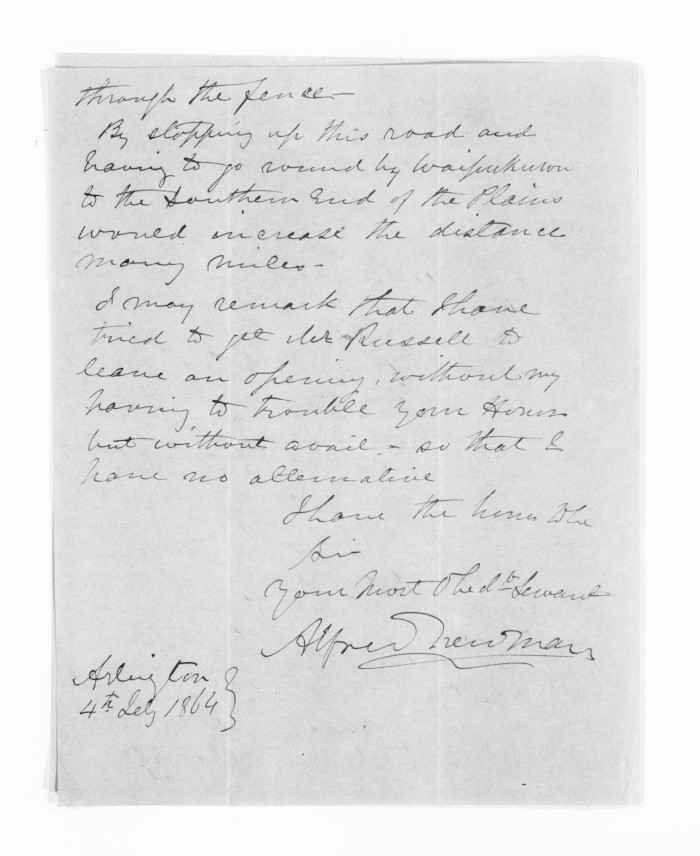 through the fence –
By stopping up this road and
having to go round by Waipukurow
to the Southern End of the Plains
would increase the distance
many miles –
I may remark that I have
tried to get Mr Russell to
leave an opening, without my
having to trouble your Honor
but without avail – so that I
have no alternative
I have the honor to be
Sir
Your Most Obedt. Servant
Alfred Newman
Arlington
4th July 1864